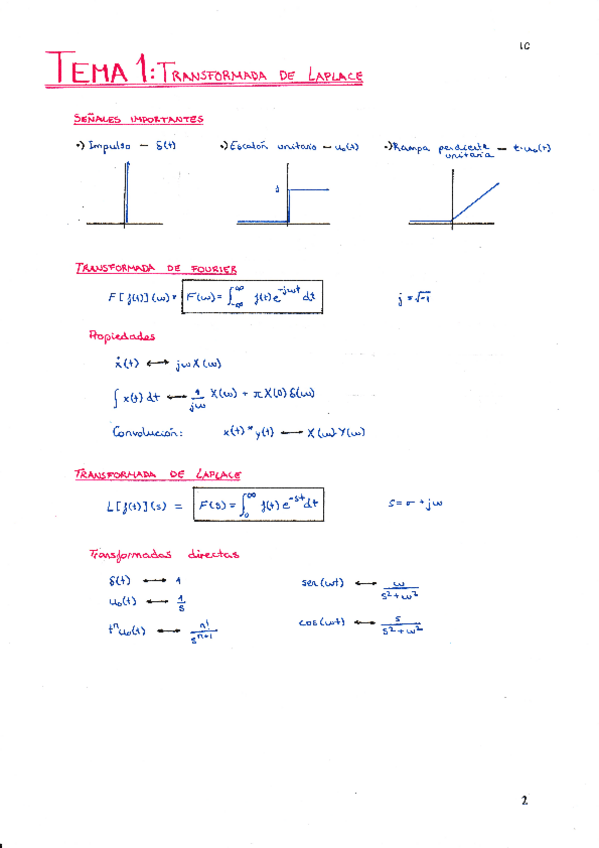 IC
TEMA 1: TRANSFORMADA DE LAPLACE
SEÑALES IMPORTANTES
•) Impulso — δ(t) •) Escalón unitario — u₀(t) •) Rampa pendiente unitaria — t·u₀(t)
1
TRANSFORMADA DE FOURIER
F[f(t)](ω) = F(ω) = ∫_{-∞}^{∞} f(t) e^{-jωt} dt j = √-1
Propiedades
ẋ(t) ⟷ jω X(ω)
∫ x(t) dt ⟷ 1/jω X(ω) + π X(0) δ(ω)
Convolución: x(t) * y(t) ⟷ X(ω)·Y(ω)
TRANSFORMADA DE LAPLACE
L[f(t)](s) = F(s) = ∫_0^∞ f(t) e^{-st} dt s = σ + jω
Transformadas directas
δ(t) ⟷ 1 sen(ωt) ⟷ ω/(s²+ω²)
u₀(t) ⟷ 1/s
tⁿu₀(t) ⟷ n!/s^{n+1} cos(ωt) ⟷ s/(s²+ω²)
2